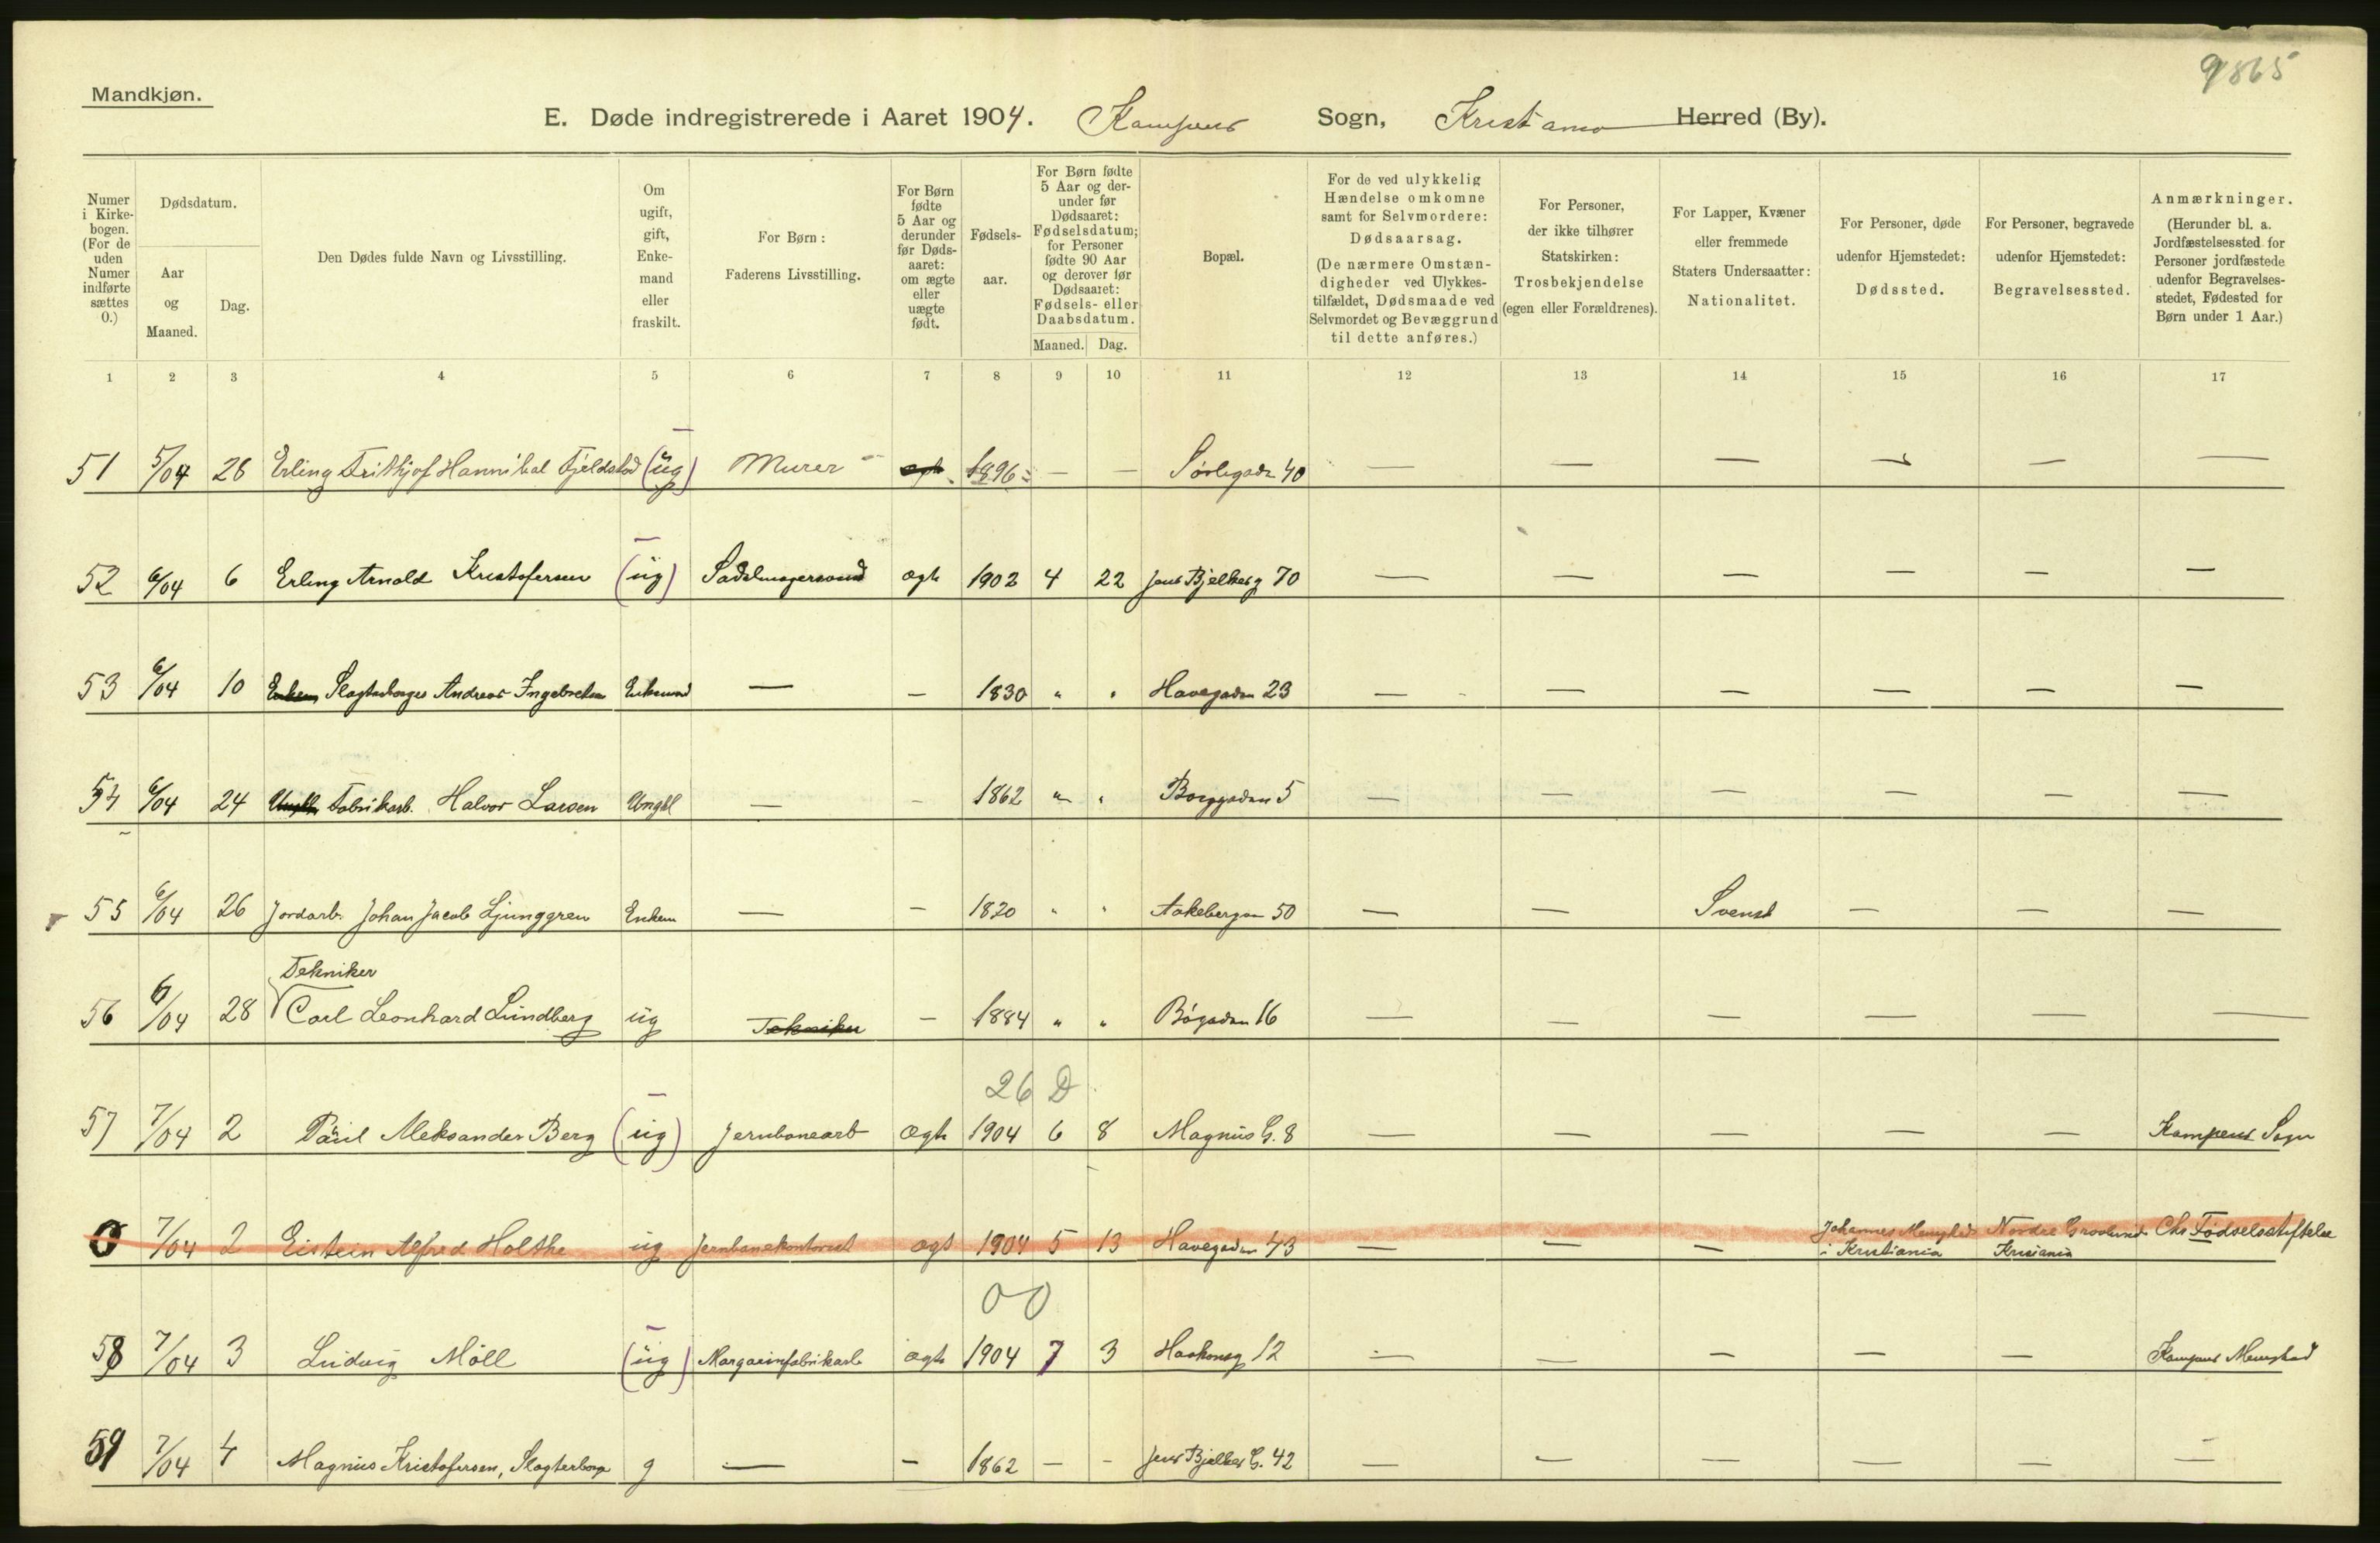 9865
Mandkjøn.
E. Døde indregistrerede i Aaret 1904. Kampens Sogn, Kristiania Herred (By).
Numer i Kirkebogen. (For de uden Numer indførte sættes 0.)
Dødsdatum.
Aar og Maaned.
Dag.
Den Dødes fulde Navn og Livsstilling.
Om ugift, gift, Enkemand eller fraskilt.
For Børn: Faderens Livsstilling.
For Børn fødte 5 Aar og derunder før Dødsaaret: om ægte eller uægte født.
Fødselsaar.
For Børn fødte 5 Aar og derunder før Dødsaaret: Fødselsdatum; for Personer fødte 90 Aar og derover før Dødsaaret: Fødsels- eller Daabsdatum.
Maaned. Dag.
Bopæl.
For de ved ulykkelig Hændelse omkomne samt for Selvmordere: Dødsaarsag. (De nærmere Omstændigheder ved Ulykkestilfældet, Dødsmaade ved Selvmordet og Bevæggrund til dette anføres.)
For Personer, der ikke tilhører Statskirken: Trosbekjendelse (egen eller Forældrenes).
For Lapper, Kvæner eller fremmede Staters Undersaatter: Nationalitet.
For Personer, døde udenfor Hjemstedet: Dødssted.
For Personer, begravede udenfor Hjemstedet: Begravelsessted.
Anmærkninger. (Herunder bl. a. Jordfæstelsessted for Personer jordfæstede udenfor Begravelsesstedet, Fødested for Børn under 1 Aar.)
1 2 3 4 5 6 7 8 9 10 11 12 13 14 15 16 17
51 5/04 28 Erling Frithjof Hannibal Fjeldstad (ug) Murer ægte 1896 — — Sørligaden 40 — — — — — —
52 6/04 6 Erling Arnold Kristofersen (ug) Sadelmagersvend ægte 1902 4 22 Jens Bjelkesg 70 — — — — — —
53 6/04 10 Enkem Slagterborger Andreas Ingebretsen Enkemand — — 1830 " " Havegaden 23 — — — — — —
54 6/04 24 Ungkl Fabrikarb. Halvor Larsen Ungkl — — 1862 " " Borggaden 5 — — — — — —
55 6/04 26 Jordarb. Johan Jacob Ljunggren Enkem — — 1820 " " Aakebergvn 50 — — Svensk — — —
Tekniker
56 6/04 28 Carl Leonhard Lundberg ug Tekniker — 1884 " " Bøgaden 16 — — — — — —
26 D
57 7/04 2 Paul Aleksander Berg (ug) Jernbanearb ægte 1904 6 8 Magnus G. 8 — — — — — Kampens Sogn
0 7/04 2 Eistein Alfred Holthe ug Jernbanekontorist ægt 1904 5 13 Havegaden 43 — — — Johannes Menighed i Kristiania Nordre Gravlund Kristiania Chr Fødselsstiftelse
00
58 7/04 3 Ludvig Möll (ug) Margarinfabrikarb ægte 1904 7 3 Haakonsg 12 — — — — — Kampens Menighed
59 7/04 4 Magnus Kristofersen, Slagterborger g — — 1862 — — Jens Bjelkes G. 42 — — — — — —